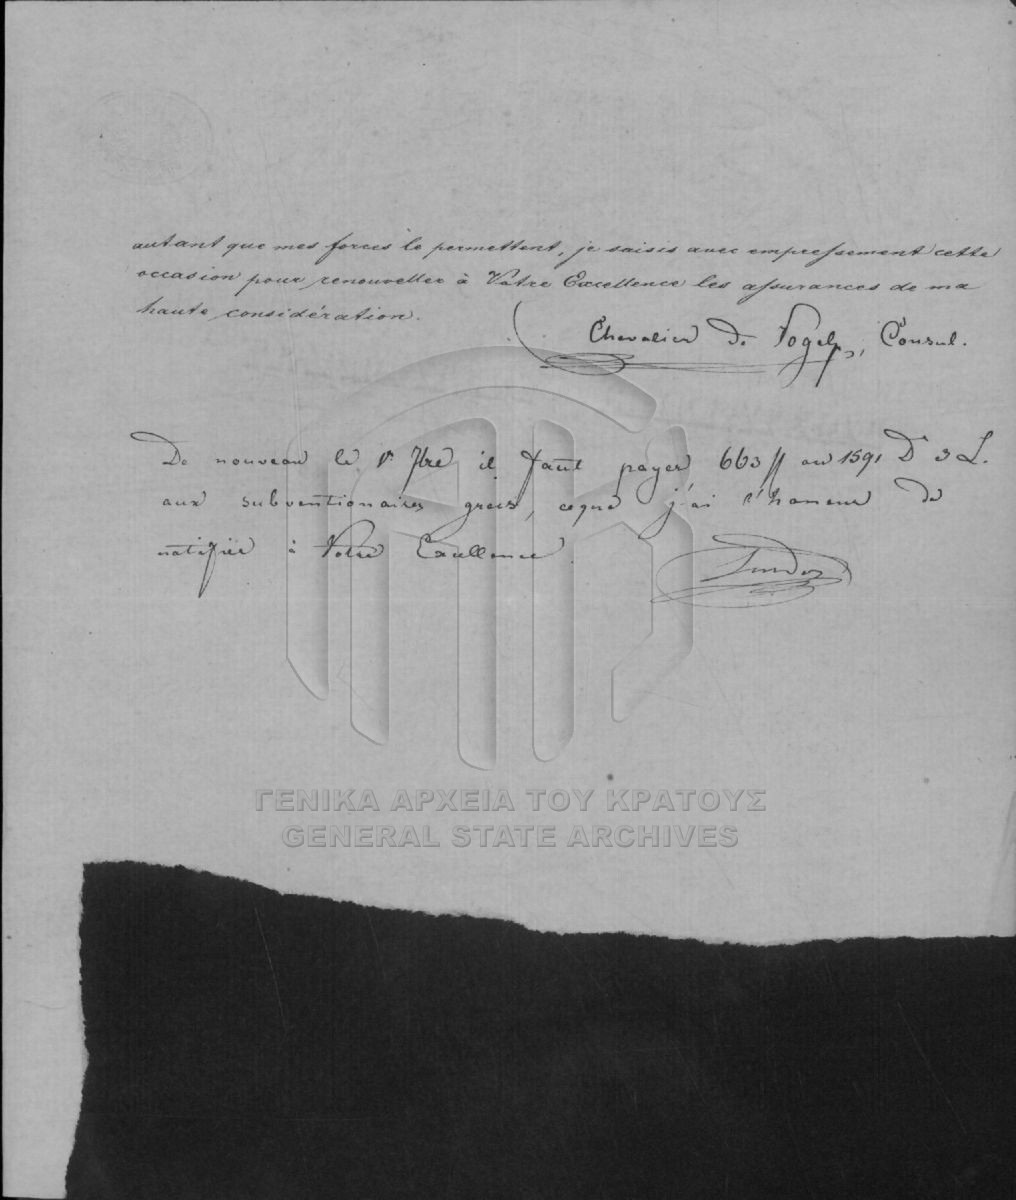 autant que mes forces le permettent, je saisis avec empressement cette
occasion pour renouveller à Votre Excellence les assurances de ma
haute considération.
Chevalier de Vogel, Consul.
De nouveau le 1r 7bre il faut payer 663 ff ou 1591 D 3 L.
aux subventionaires grecs, ceque j'ai l'honneur de
notifier à Votre Excellence.
ΓΕΝΙΚΑ ΑΡΧΕΙΑ ΤΟΥ ΚΡΑΤΟΥΣ
GENERAL STATE ARCHIVES